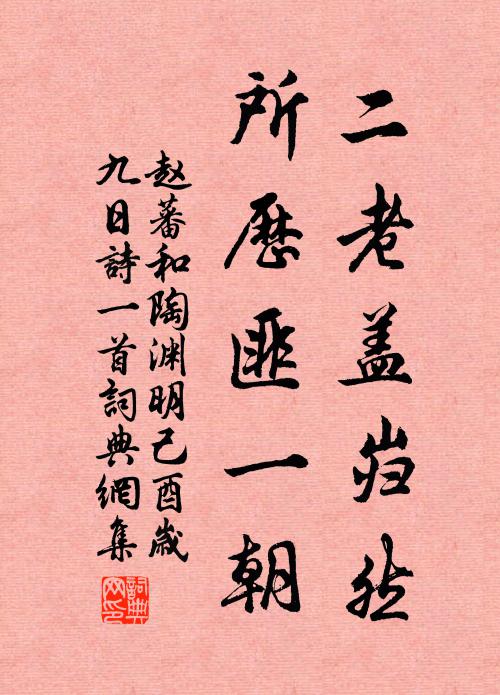 二老盖岿然
所歷匪一朝
赵蕃和陶渊明己酉歲
九日詩一首詞典網集
詞典
网印